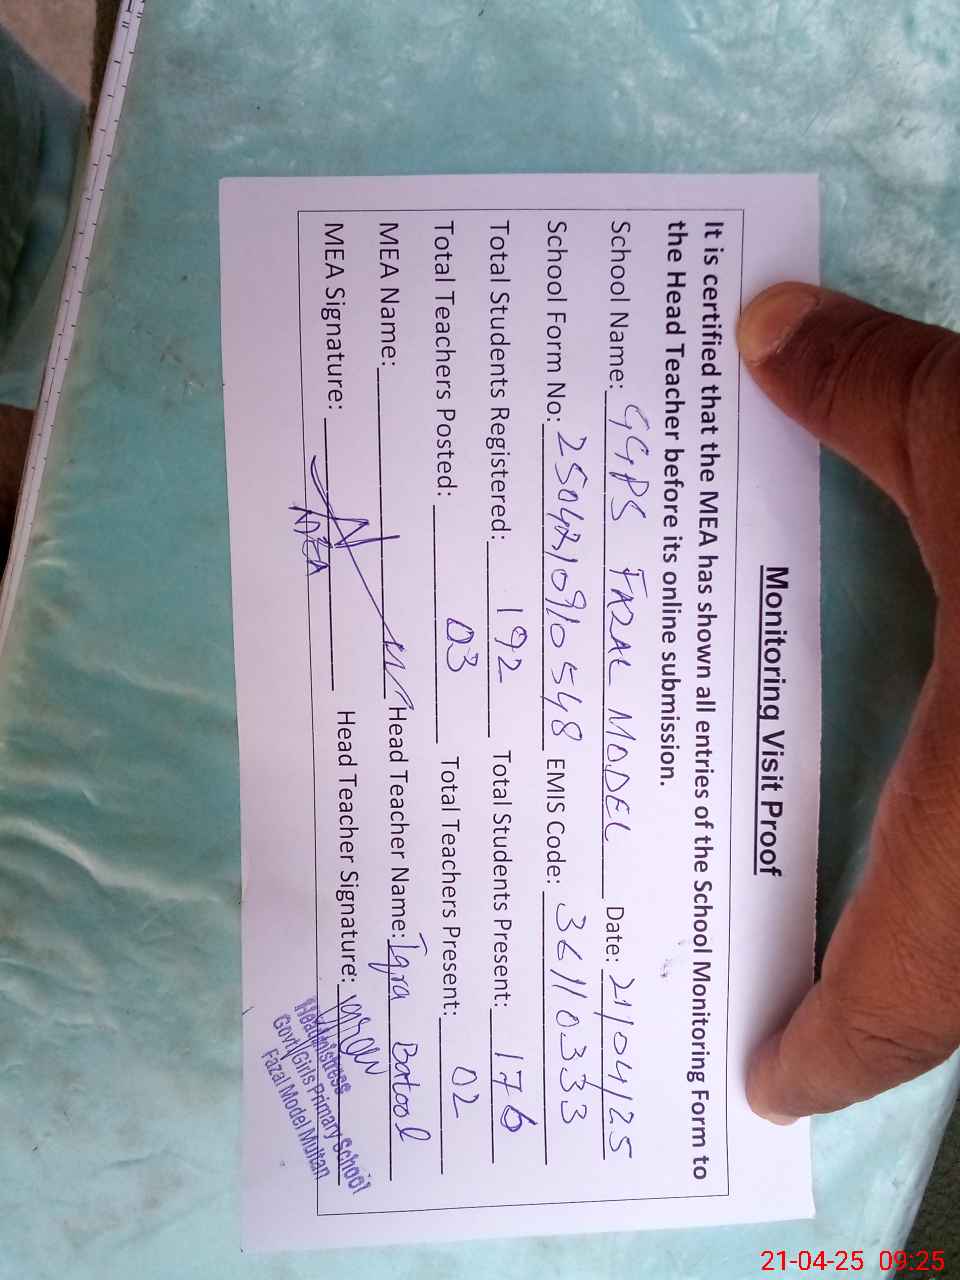 Monitoring Visit Proof
It is certified that the MEA has shown all entries of the School Monitoring Form to
the Head Teacher before its online submission.
School Name: GGPS FAZAL MODEL Date: 21/04/25
School Form No: 2504210910548 EMIS Code: 36110333
Total Students Registered: 192 Total Students Present: 176
Total Teachers Posted: 03 Total Teachers Present: 02
MEA Name: Head Teacher Name: Iqra Batool
MEA Signature: MEA Head Teacher Signature:
Headmistress
Govt. Girls Primary School
Fazal Model Multan
21-04-25 09:25